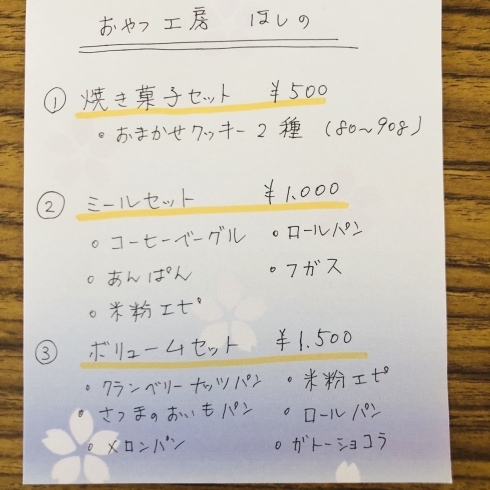 おやつ工房 ほしの
① 焼き菓子セット ¥500
・おまかせクッキー2種 (80〜90g)
② ミールセット ¥1,000
・コーヒーベーグル ・ロールパン
・あんぱん ・フガス
・米粉エピ
③ ボリュームセット ¥1,500
・クランベリーナッツパン ・米粉エピ
・さつまのおいもパン ・ロールパン
・メロンパン ・ガトーショコラ